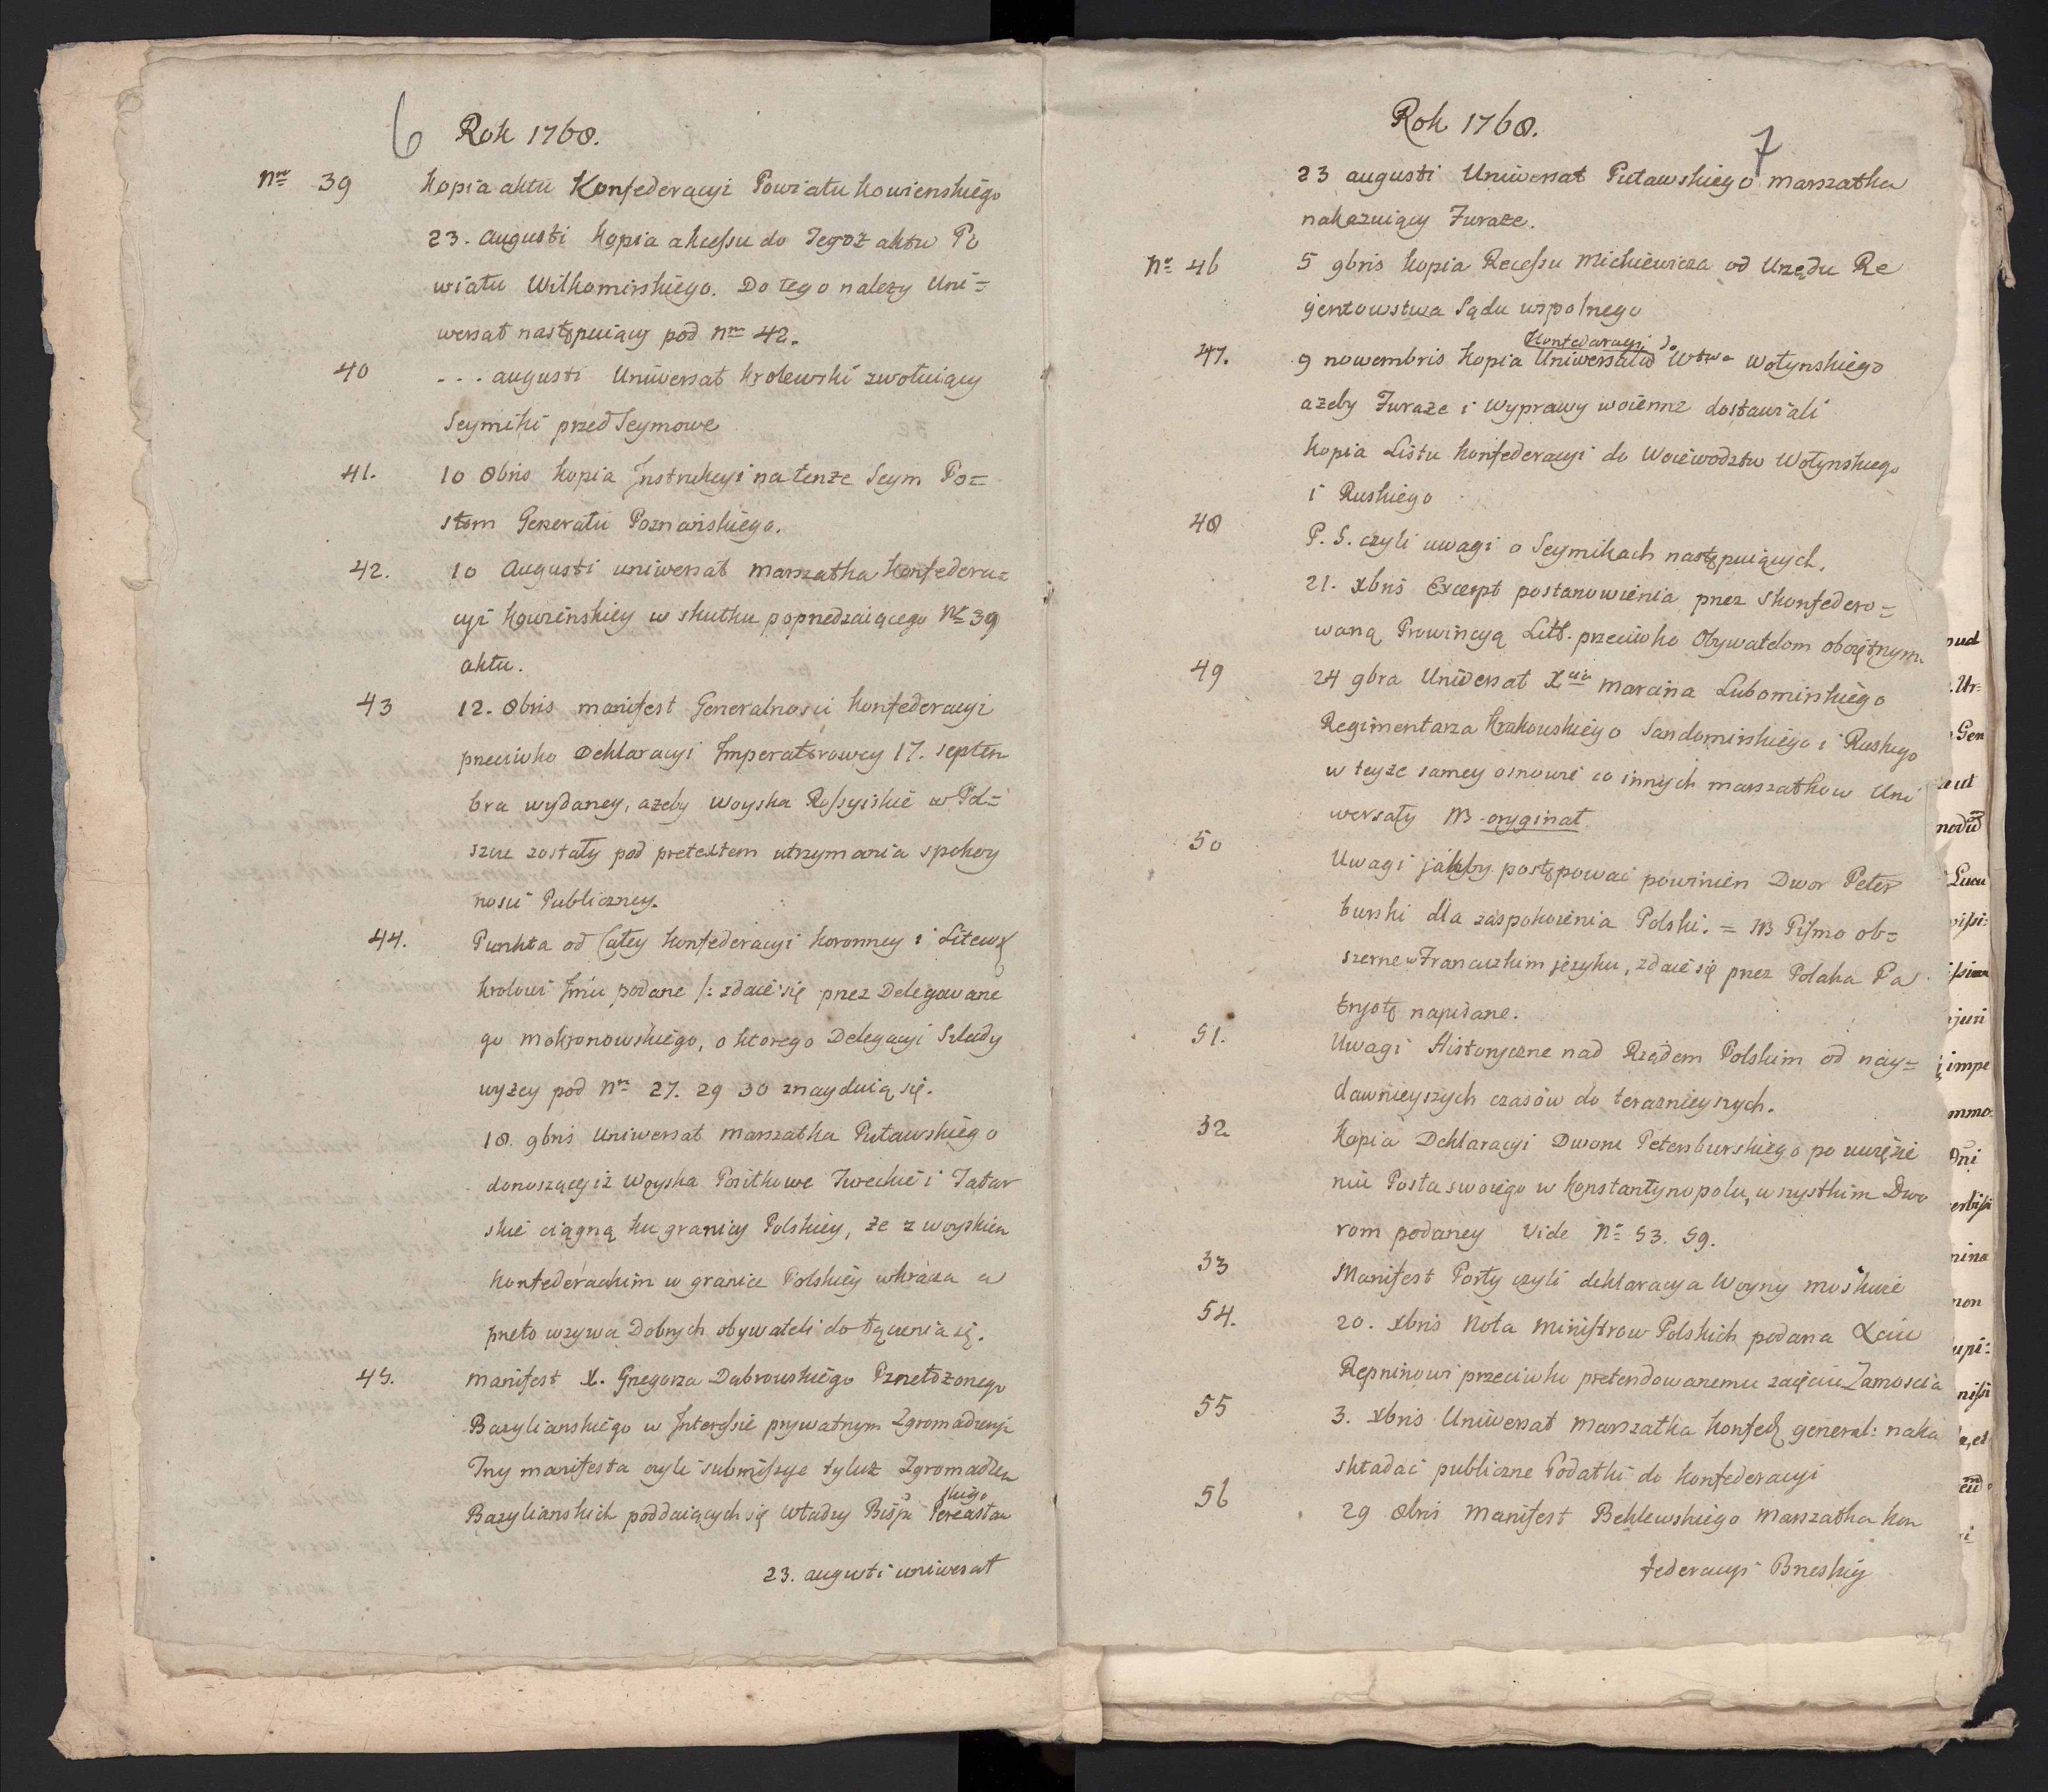 6 Rok 1768.
Nro 39 Kopia aktu Konfederacyi Powiatu Kowienskiego
23. augusti Kopia akcessu do Tegoż aktu Po
wiatu Wilkomirskiego. Do tego nalezy Uni=
wersał następuiący pod Nrm 42.
40 ... augusti Uniwersał Krolewski zwołuiący
Seymiki przed Seymowe
41. 10 8bris Kopia Instrukcyi na tenże Seym Po=
słom Generału Poznańskiego.
42. 10 Augusti uniwersał marszałka Konfedera=
cyi Kowieńskiey w skutku poprzedzaiącego Nr 39
aktu.
43 12. 8bris manifest Generalnosci Konfederacyi
przeciwko Deklaracyi Imperatorowey 17. septem
bra wydaney, azeby woyska Rossyiskie w Pol=
szcze zostały pod pretextem utrzymania spokoy
nosci Publiczney.
44. Punkta od Całey Konfederacyi Koronney i Litew
Krolowi Jmci podane /: zdaie się przez Delegowane
go Mokronowskiego, o ktorego Delegacyi Szlady
wyżey pod Nr 27. 29 30 znayduią się.
18. 9bris Uniwersał Marszałka Puławskiego
donoszący iż Woyska Posiłkowe Tureckie i Tatar
skie ciągną ku granicy Polskiey, że z woyskiem
Konfederackim w granice Polskiey wkracza a
przeto wzywa Dobrych obywateli do łączenia się.
45. manifest X. Grzegorza Dąbrowskiego Przełożonego
Bazylianskiego w Interessie prywatnym Zgromadzenia
Trzy manifesta czyli submissye tyluż Zgromadzen
Bazylianskich poddaiących się władzy Bispa Pereasław
skiego
23. augusti uniwersał
Rok 1768.
7
23 augusti Uniwersał Puławskiego marszałka
nakazuiący Furaże.
Nr 46 5 9bris Kopia Recessu Mickiewicza od Urzędu Re
jentowstwa Sądu wspolnego
Konfederacyi do
47. 9 nowembris Kopia Uniwersału Wtwa Wołynskiego
azeby Furaże i wyprawy woienne dostawiali
Kopia Listu Konfederacyi do Woiewodztw Wołynskiego
i Ruskiego
48 P. S. czyli uwagi o Seymikach następuiących.
21. xbris Excerpt postanowienia przez skonfedero=
waną Prowincyą Litt. przeciwko Obywatelom oboiętnym.
49 24 9bra Uniwersał Xcia Marcina Lubomirskiego
Regimentarza Krakowskiego Sandomirskiego i Ruskiego
w teyże samey osnowie co innych marszałkow Uni
wersały NB. oryginał
50 Uwagi jakby postępowac powinien Dwor Peter
burski dla zaspokoienia Polski. = NB Pismo ob=
szerne w Francuzkim języku, zdaie się przez Polaka Pa
tryotę napisane.
51. Uwagi Historyczne nad Rządem Polskim od nay=
dawnieyszych czasów do teraznieyszych.
52 Kopia Deklaracyi Dworu Petersburskiego po uwięzie
niu Posła swoiego w Konstantynopolu, wszystkim Dwo
rom podaney Vide Nr 53. 59.
53 Manifest Porty czyli deklaracya Woyny Moskwie
54. 20. xbris Nota Ministrow Polskich podana Xciu
Repninowi przeciwko pretendowanemu zaięciu Zamoscia
55 3. xbris Uniwersał Marszałka Konfed general: naka
składać publiczne Podatki do Konfederacyi
56 29 8bris Manifest Beklewskiego Marszałka Kon
federacyi Brzeskiy